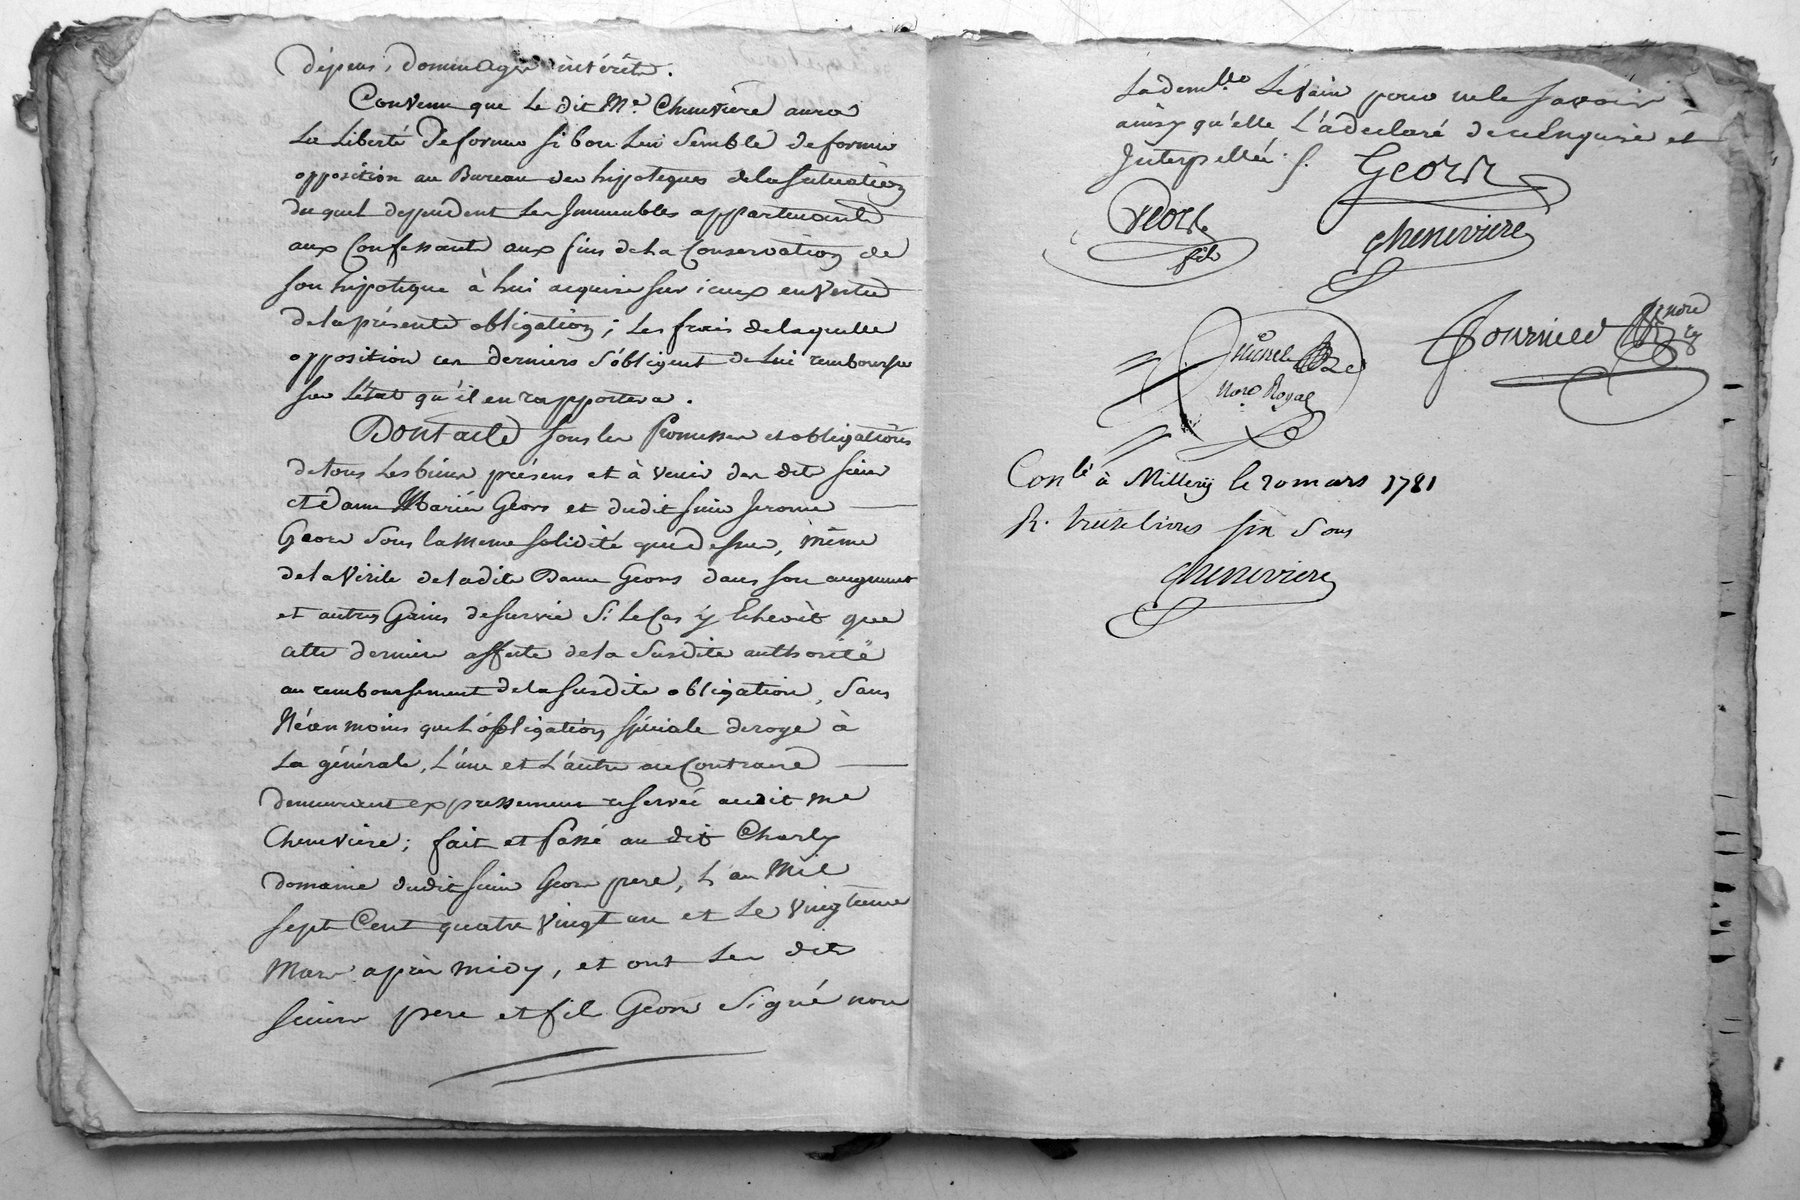 dépens, dommages intérêts.
Convenu que le dit Me. Chenevière aura
La Liberté de former si bon Lui Semble de former
opposition au Bureau des hipoteques de la situation
duquel dependent Les Immeubles appartenants
aux Confessants aux fins de La Conservation de
son hipoteque à Lui acquise sur iceux en Vertu
de la présente obligation; Les frais de laquelle
opposition ces derniers s'obligent de Lui rembourser
sur L'état qu'il en rapportera.
Dont acte sous les Promesses et obligations
de tous Les biens présens et à venir des dits sieur
et Dame Mariés Geors et dudit sieur Jerome
Geors sous la meme solidité que dessus, même
de la Virile de ladite Dame Geors dans son augment
et autres Gains de survie Si le Cas y Echeoit que
cette derniere affecte de la Susdite authorité
au remboursement de la susdite obligation, Sans
Néanmoins que L'obligation spéciale deroge à
La générale, L'une et L'autre au Contraire
demeurant expressement reservée audit Me
Chenevière; fait et Passé au dit Charly
domaine dudit sieur Geors pere, L'an Mil
sept Cent quatre Vingt un et Le Vingtieme
Mars après midy, et ont Les dits
sieurs pere et fils Geors Signé non
Lademlle Levain pour ne le savoir
ainsy qu'elle L'a declaré de ce enquise et
Interpellée. /.
Geors
Geors
fils
Chenevière
Michel
Nore Royal
Fournier
Conlé à Millery le 20 mars 1781
R. treize livres six Sous
Chenevière